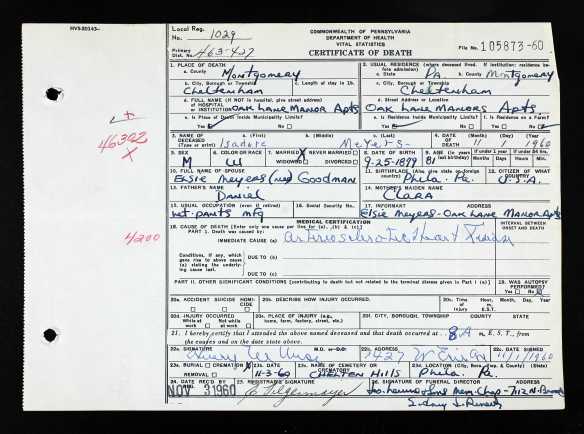 HVS-20143-
Local Reg. No. 1029
Primary Dist. No. 463-427
COMMONWEALTH OF PENNSYLVANIA
DEPARTMENT OF HEALTH
VITAL STATISTICS
CERTIFICATE OF DEATH
File No. 105873-60
1. PLACE OF DEATH
a. County Montgomery
2. USUAL RESIDENCE (Where deceased lived. If institution: residence before admission)
a. State Pa. b. County Montgomery
b. City, Borough or Township Cheltenham
c. Length of stay in 1b
c. City, Borough or Township Cheltenham
d. FULL NAME (If NOT in hospital, give street address) OF HOSPITAL OR INSTITUTION Oak Lane Manor Apts
d. Street Address or Location Oak Lane Manors Apts.
e. Is Place of Death Inside Municipality Limits?
Yes No
e. Is Residence Inside Municipality Limits?
Yes No
f. Is Residence on a Farm?
Yes No
46302
X
3. NAME OF DECEASED (Type or print)
a. (First) Isadore
b. (Middle)
c. (Last) Meyers
4. DATE OF DEATH
Month Day Year
11 1960
5. SEX M
6. COLOR OR RACE W
7. MARRIED X NEVER MARRIED
WIDOWED DIVORCED
8. DATE OF BIRTH 9-25-1879
9. AGE 81
10. FULL NAME OF SPOUSE
Elsie Meyers (nee) Goodman
11. BIRTHPLACE Phila. Pa.
12. CITIZEN OF WHAT COUNTRY U.S.A.
13. FATHER'S NAME
Daniel
14. MOTHER'S MAIDEN NAME
Clara
15. USUAL OCCUPATION (even if retired)
ret-pants mfg
16. Social Security No.
17. INFORMANT Address
Elsie Meyers - Oak Lane Manor Apts
4200
MEDICAL CERTIFICATION
18. CAUSE OF DEATH (Enter only one cause per line for (a), (b) & (c).
PART I. Death was caused by:
IMMEDIATE CAUSE (a) Arteriosclerotic Heart Disease
INTERVAL BETWEEN ONSET AND DEATH
Conditions, if any, which gave rise to above cause (a) stating the underlying cause last.
DUE TO (b)
DUE TO (c)
PART II. OTHER SIGNIFICANT CONDITIONS (contributing to death but not related to the terminal disease given in Part I (a)
19. WAS AUTOPSY PERFORMED?
Yes No
20a. ACCIDENT SUICIDE HOMICIDE
20b. DESCRIBE HOW INJURY OCCURRED.
20c. Time of Injury
Hour Month, Day, Year
20d. INJURY OCCURRED
While at work Not while at work
20e. PLACE OF INJURY (e.g. home, farm, factory, street, etc.)
20f. CITY, BOROUGH, TOWNSHIP COUNTY STATE
21. I hereby certify that I attended the above named deceased and that death occurred at 8 A m. E.S.T., from the causes and on the date stated above.
22a. SIGNATURE
M.D. or D.O.
22b. ADDRESS
22c. DATE SIGNED
11/1/1960
23a. BURIAL CREMATION
REMOVAL
23b. DATE
11-3-60
23c. NAME OF CEMETERY OR CREMATORY
Chelten Hills
23d. LOCATION
Phila. Pa.
24. DATE REC'D
NOV 3 1960
25. REGISTRAR'S SIGNATURE
26. SIGNATURE OF FUNERAL DIRECTOR ADDRESS
Mem. Chap - 7112 N. Broad